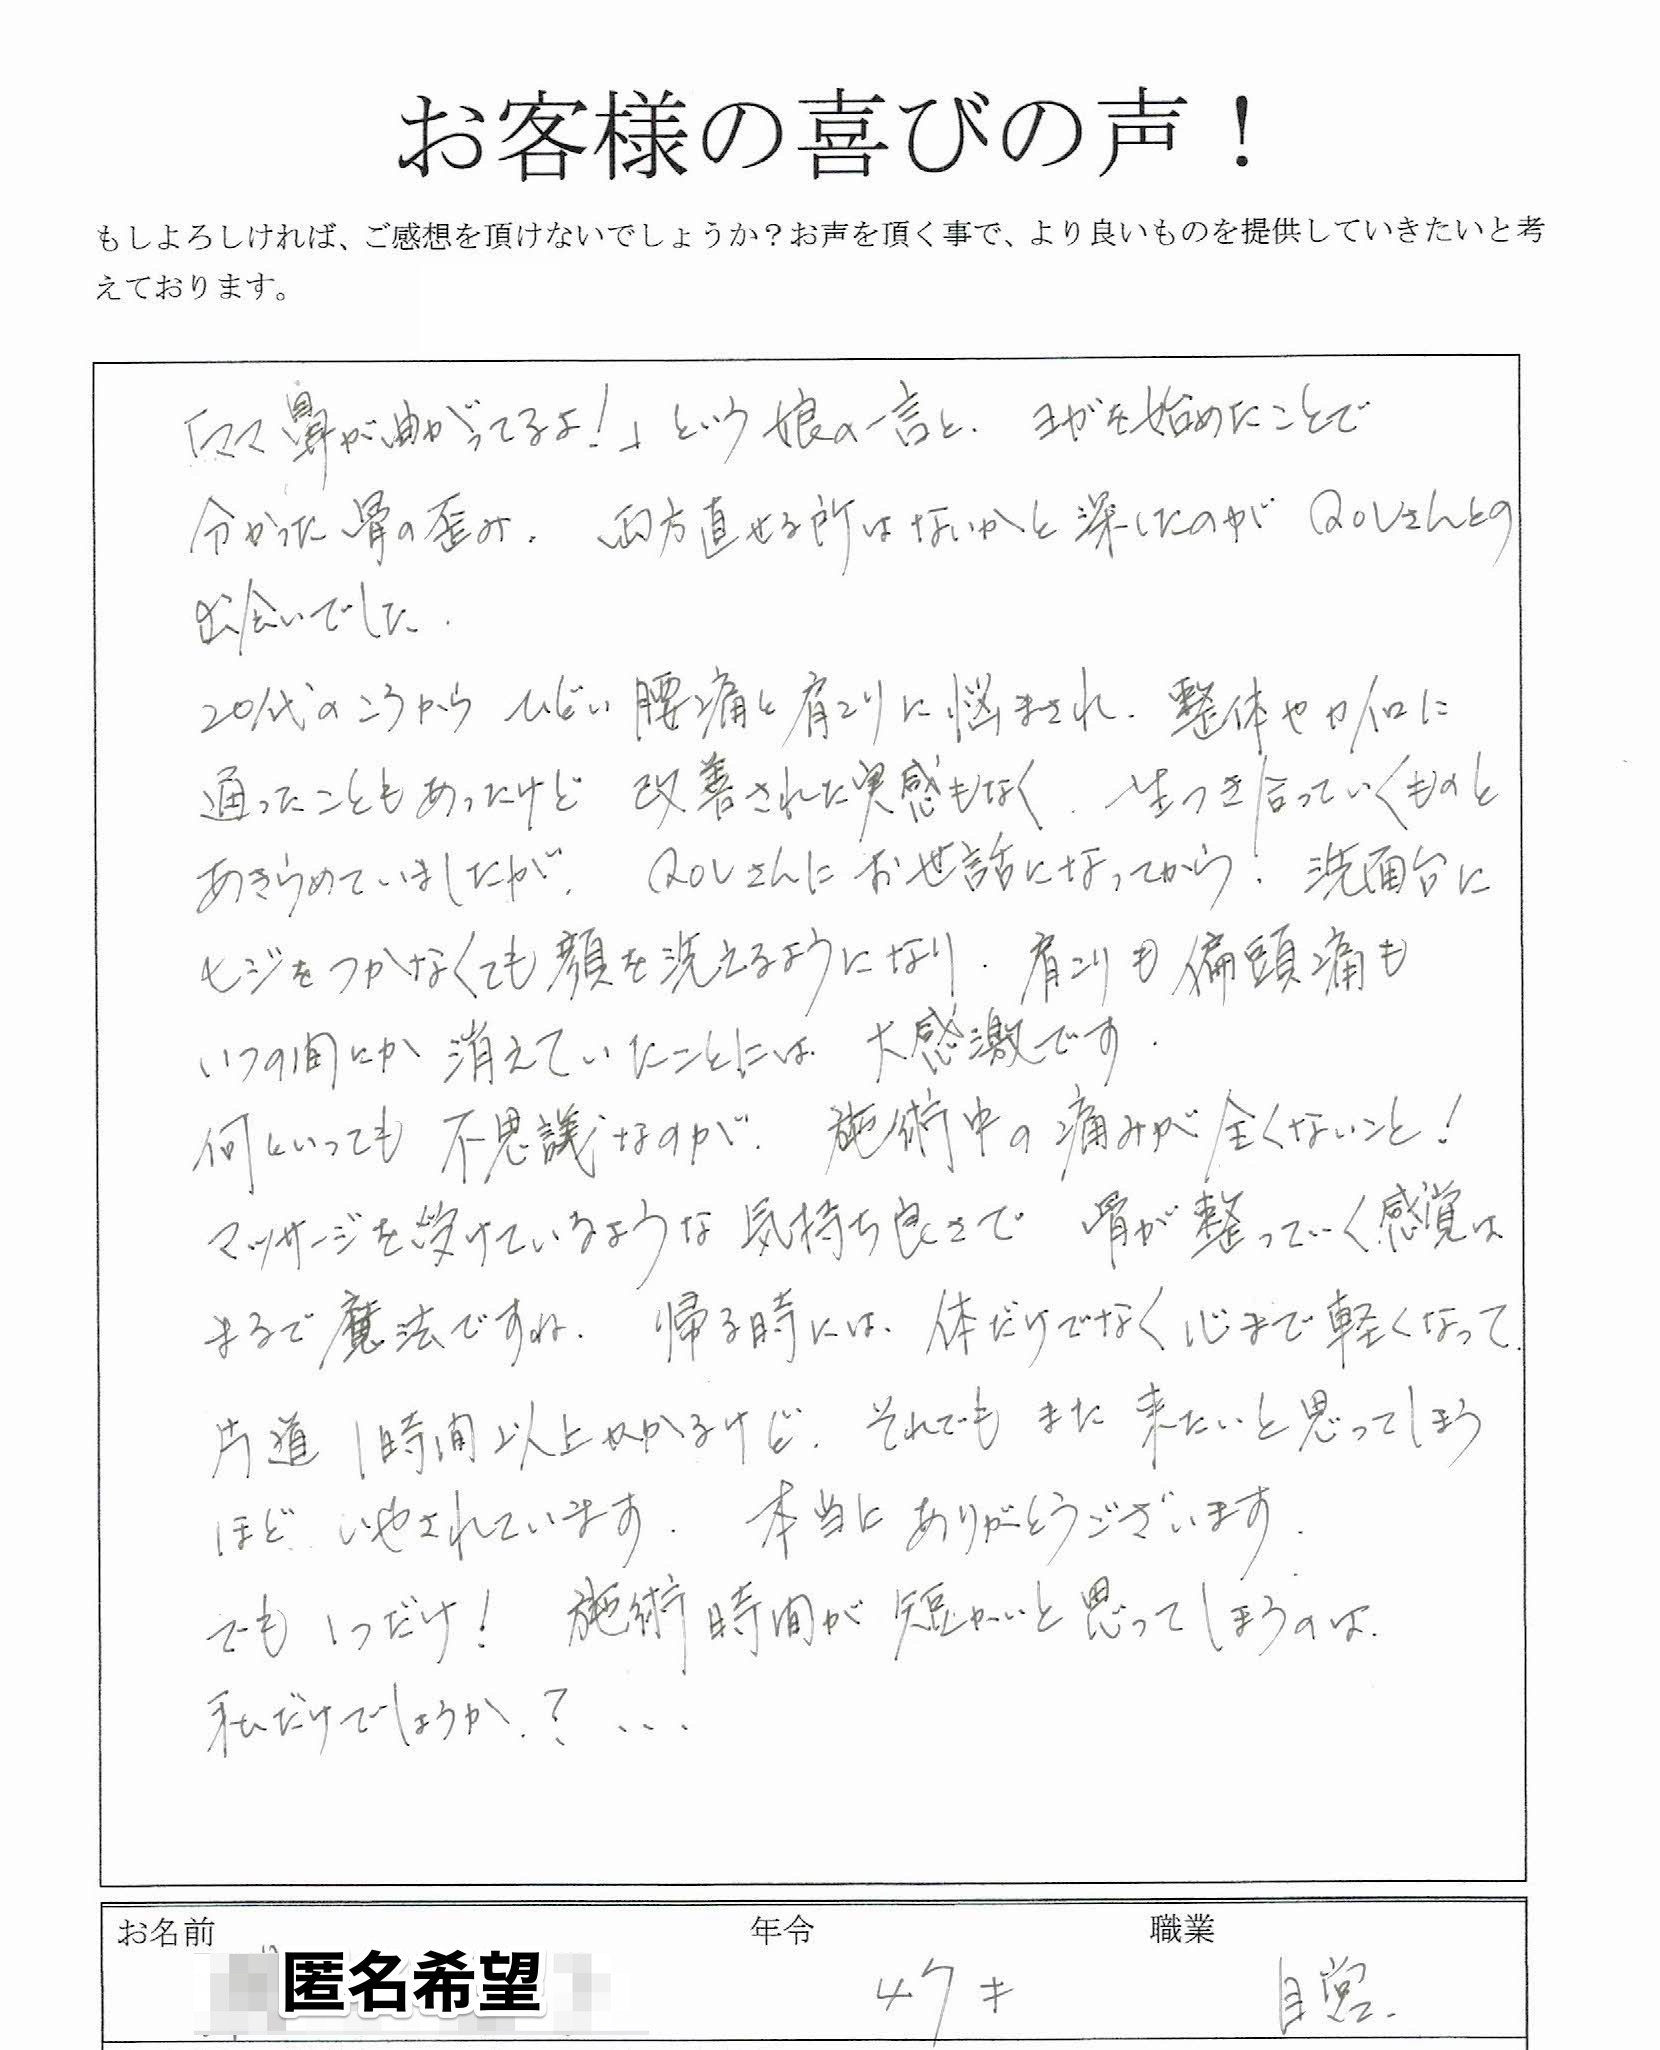 お客様の喜びの声！
もしよろしければ、ご感想を頂けないでしょうか？お声を頂く事で、より良いものを提供していきたいと考
えております。
「ママ鼻が曲がってるよ！」という娘の一言と、ヨガを始めたことで
分かった骨の歪み。両方直せる所はないかと探したのがQOLさんとの
出会いでした。
20代のころからひどい腰痛と肩こりに悩まされ、整体やカイロに
通ったこともあったけど改善された実感もなく、一生つき合っていくものと
あきらめていましたが、QOLさんにお世話になってから！洗面台に
ヒジをつかなくても顔を洗えるようになり、肩こりも偏頭痛も
いつの間にか消えていたことには大感激です。
何といっても不思議なのが、施術中の痛みが全くないこと！
マッサージを受けているような気持ち良さで骨が整っていく感覚は
まるで魔法ですね。帰る時には、体だけでなく心まで軽くなって、
片道1時間以上かかるけど、それでもまた来たいと思ってしまう
ほどいやされています。本当にありがとうございます。
でも1つだけ！施術時間が短かいと思ってしまうのは、
私だけでしょうか、？...
お名前 年令 職業
匿名希望 47才 自営.